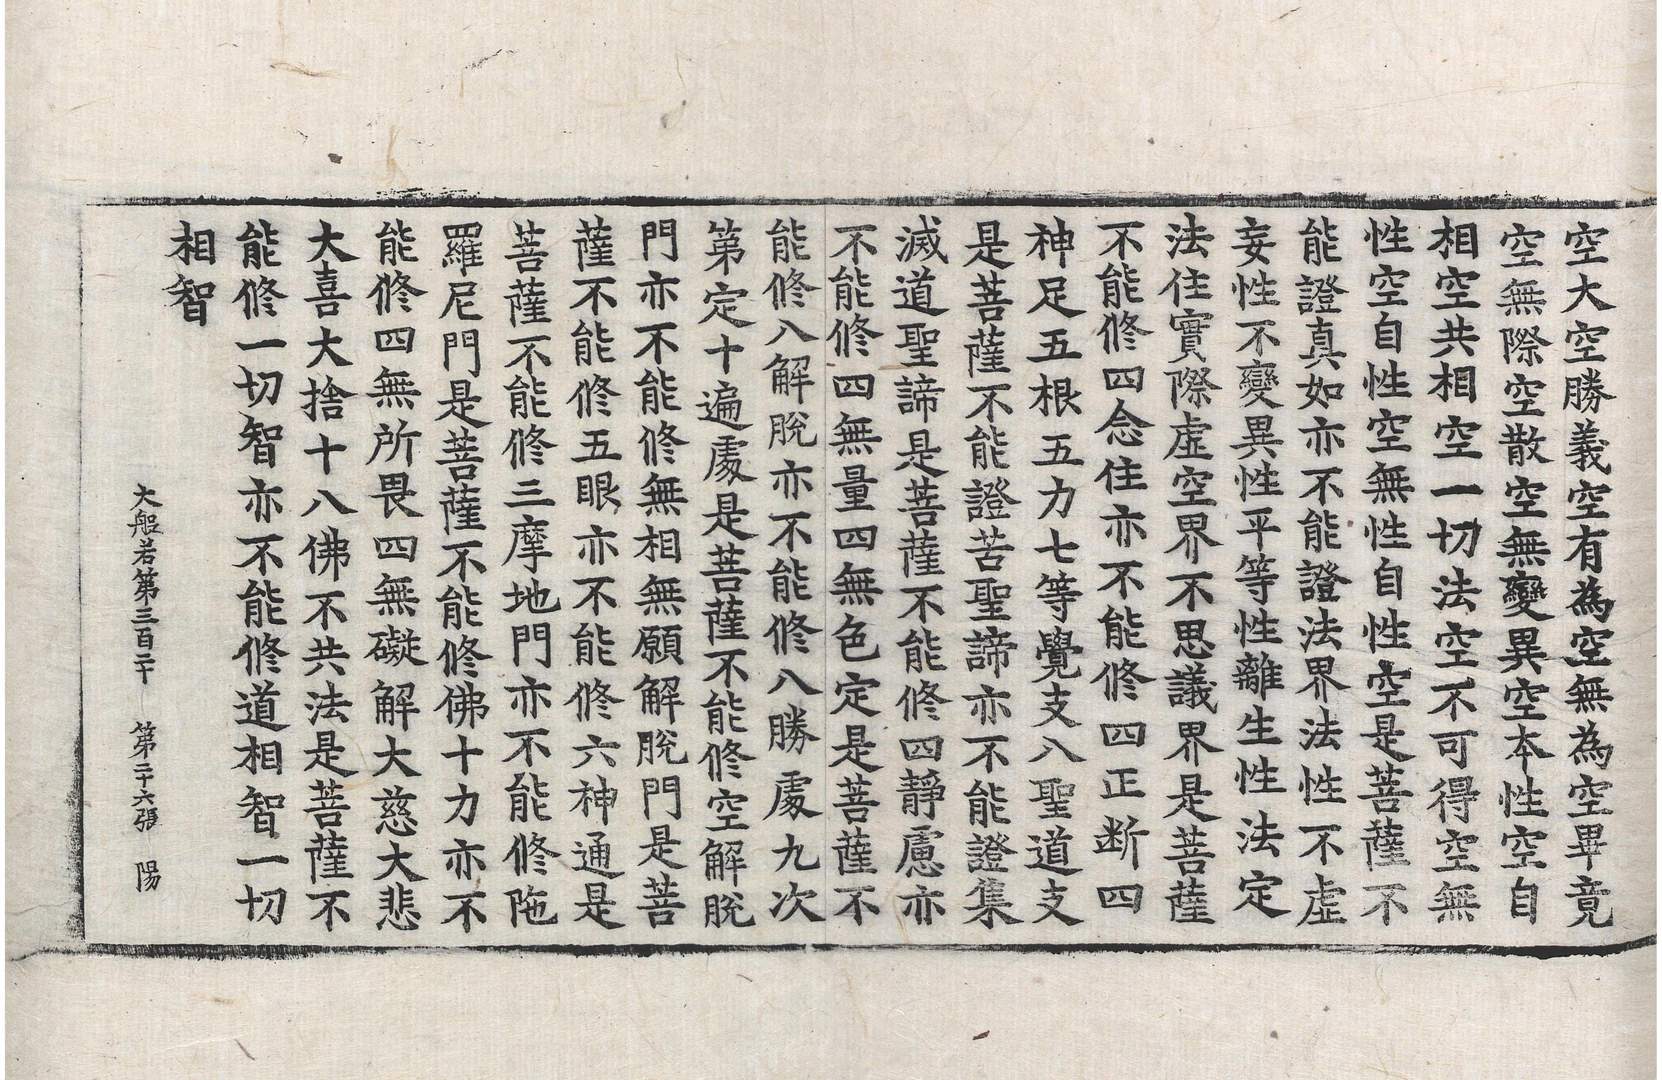 空大空勝義空有為空無為空畢竟
空無際空散空無變異空本性空自
相空共相空一切法空不可得空無
性空自性空無性自性空是菩薩不
能證真如亦不能證法界法性不虛
妄性不變異性平等性離生性法定
法住實際虛空界不思議界是菩薩
不能修四念住亦不能修四正斷四
神足五根五力七等覺支八聖道支
是菩薩不能證苦聖諦亦不能證集
滅道聖諦是菩薩不能修四靜慮亦
不能修四無量四無色定是菩薩不
能修八解脫亦不能修八勝處九次
第定十遍處是菩薩不能修空解脫
門亦不能修無相無願解脫門是菩
薩不能修五眼亦不能修六神通是
菩薩不能修三摩地門亦不能修陁
羅尼門是菩薩不能修佛十力亦不
能修四無所畏四無礙解大慈大悲
大喜大捨十八佛不共法是菩薩不
能修一切智亦不能修道相智一切
相智
大般若第三百二十 第二十六張 陽